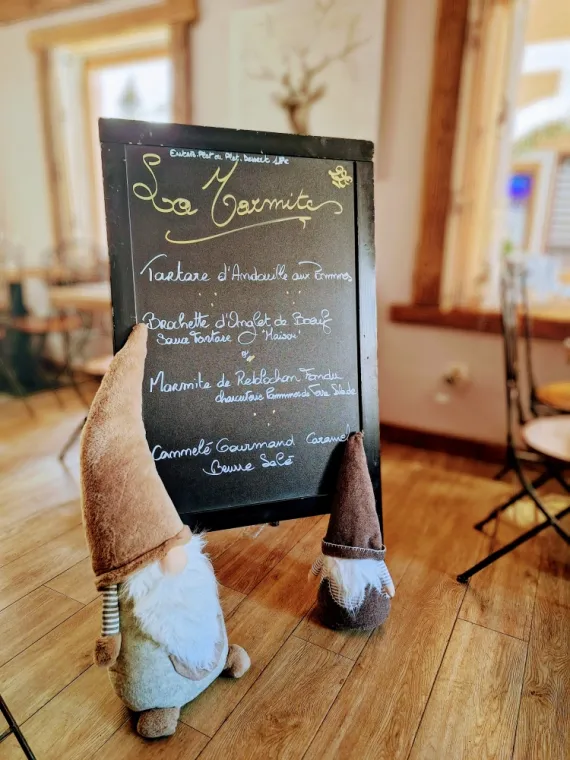 Entrée. Plat ou Plat. Dessert
La Marmite
Tartare d'Andouille aux Pommes
Brochette d'Onglet de Bœuf
Sauce Tartare "Maison"
ou
Marmite de Reblochon Fondu
charcuterie Pommes de Terre Salade
Cannelé Gourmand Caramel
Beurre Salé